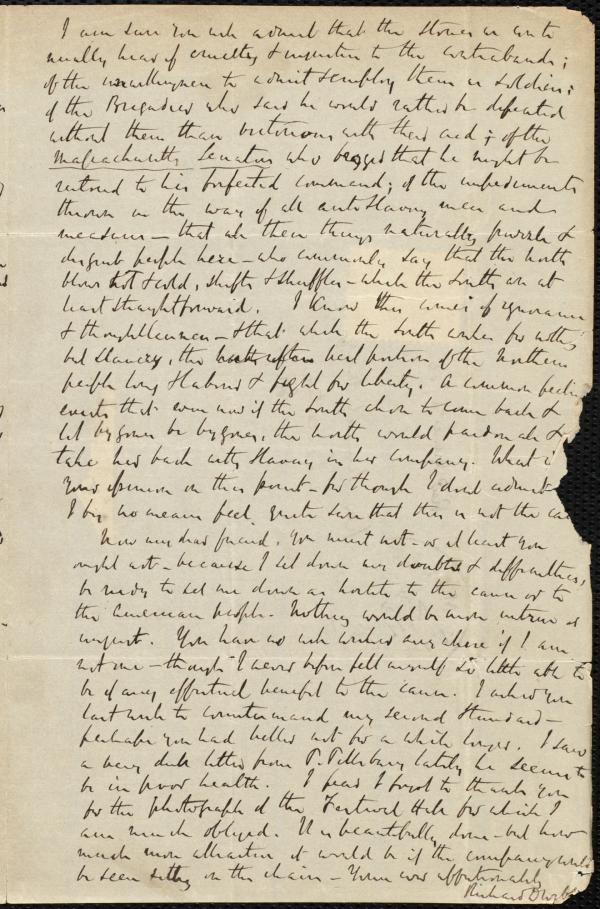 I am sure you will admit that the stories we con-
tinually hear of cruelty & injustice to the contrabands;
of the unwillingness to admit & employ them as soldiers;
of the Brigadier who said he would rather be defeated
without them than victorious with their aid; of the
Massachusetts Senators who begged that he might be
restored to his forfeited command; of the impediments
thrown in the way of all anti Slavery men and
measures - that all these things naturally puzzle &
disgust people here - who commonly say that the North
blows hot & cold, shifts & shuffles - while the South are at
least straightforward. I know this comes of ignorance
& thoughtlessness - & that while the South wishes for nothing
but Slavery, the best portion of the Northern
people long & labour & fight for liberty. A common feeling
exists that even now if the South chose to come back &
let bygones be bygones, the North would pardon all &
take her back with Slavery in her company. What is
your opinion on this point - for though I don't admit
I by no means feel quite sure that this is not the
Now my dear friend, you must not - or at least you
ought not - because I set down my doubts & difficulties,
be ready to set me down as hostile to the cause or to
the American people. Nothing would be more untrue or
unjust. You have no well wishers anywhere if I am
not one - though I never before felt myself so little able to
be of any effectual benefit to the cause. I asked you
last week to countermand my second Standard -
perhaps you had better not for a while longer. I saw
a very dull letter from P. Pillsbury lately he seems to
be in poor health. I fear I forgot to thank you
for the photograph of the Festival Hall for which I
am much obliged. It is beautifully done - but how
much more attractive it would be if the company could
be seen sitting on the chairs - Yours ever affectionately
Richard D